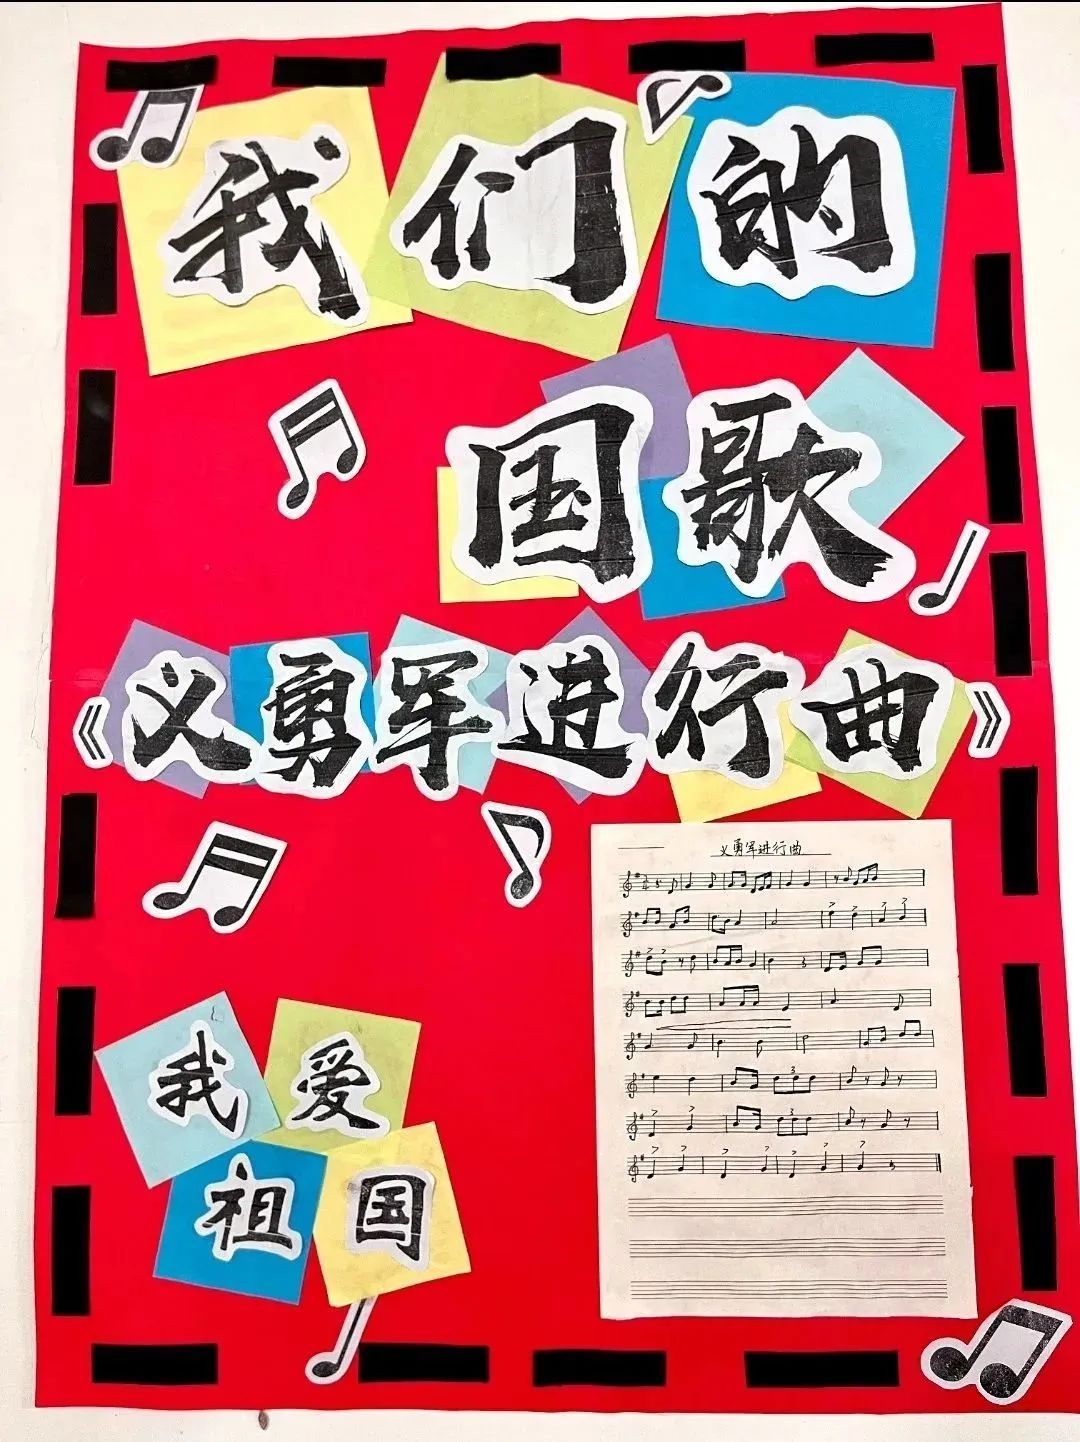 我们的
国歌
《义勇军进行曲》
义勇军进行曲
我爱
祖国